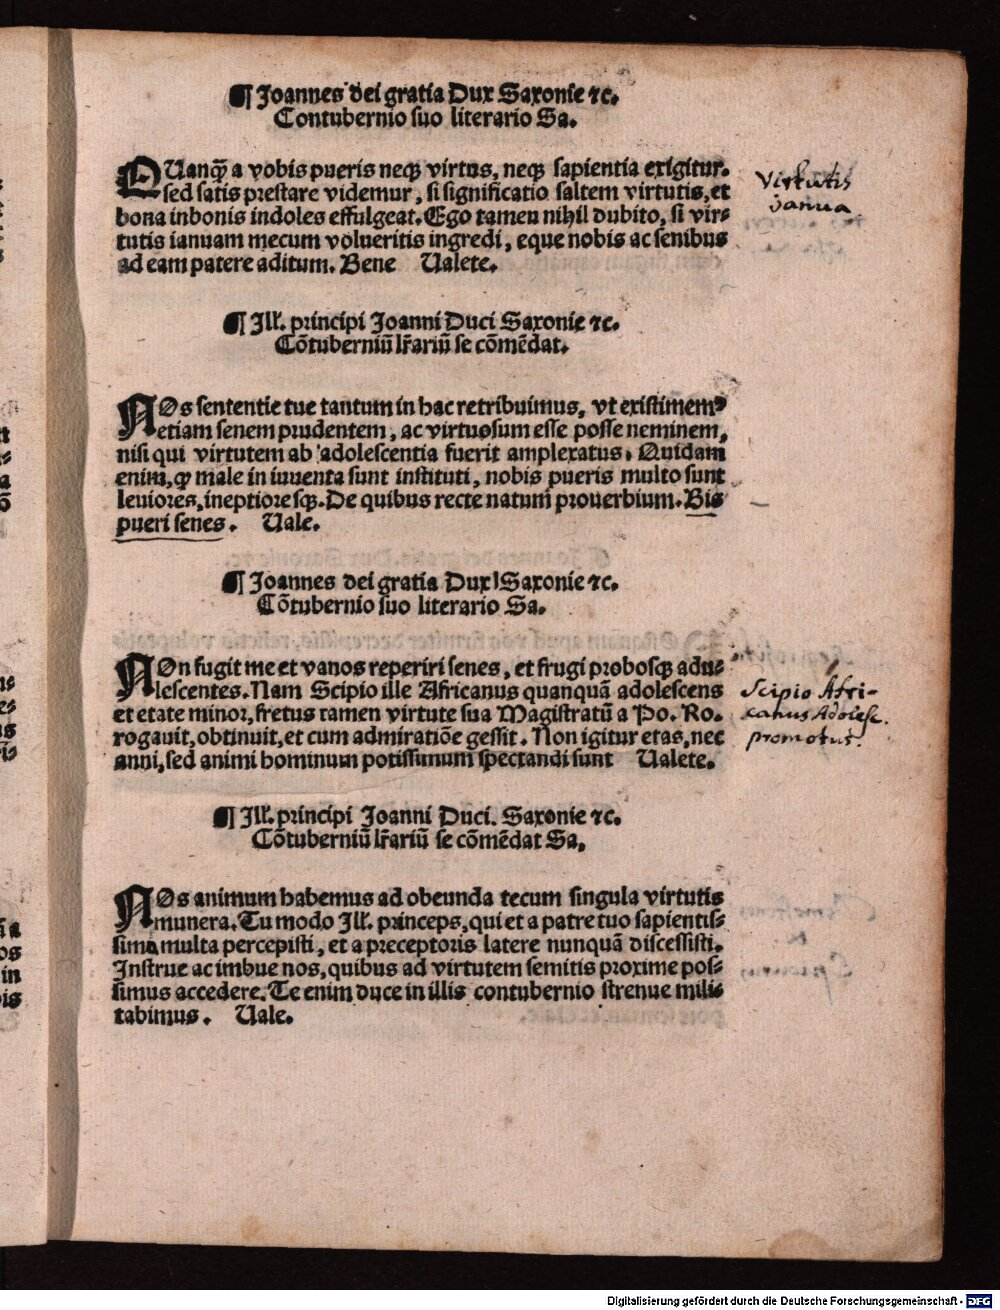 ¶ Joannes dei gratia Dux Saxonie ⁊c.
Contubernio suo literario Sa.
QUanq̄ a vobis pueris neqꝫ virtus, neqꝫ sapientia exigitur.
sed satis prestare videmur, si significatio saltem virtutis, et
bona inbonis indoles effulgeat. Ego tameu nihil dubito, si vir⸗
tutis ianuam mecum volueritis ingredi, eque nobis ac senibus
ad eam patere aditum. Bene Ualete.
Virtutis
ianua
¶ Ill. principi Joanni Duci Saxonie ⁊c.
Cōtuberniū lr̄ariū se cōmēdat.
NOs sententie tue tantum in hac retribuimus, vt existimemꝰ
etiam senem prudentem, ac virtuosum esse posse neminem,
nisi qui virtutem ab adolescentia fuerit amplexatus. Quidam
enim, ꝙ male in iuventa sunt instituti, nobis pueris multo sunt
leuiores, ineptioresqꝫ. De quibus recte natum prouerbium. Bis
pueri senes. Uale.
¶ Joannes dei gratia Dux Saxonie ⁊c.
Cōtubernio suo literario Sa.
NOn fugit me et vanos reperiri senes, et frugi probosqꝫ adu⸗
lescentes. Nam Scipio ille Africanus quanquā adolescens
et etate minor, fretus tamen virtute sua Magistratū a Po. Ro.
rogauit, obtinuit, et cum admiratiōe gessit. Non igitur etas, nec
anni, sed animi hominum potissimum spectandi sunt Ualete.
Scipio Afri-
canus Adolesc.
promotus.
¶ Ill. principi Joanni Duci. Saxonie ⁊c.
Cōtuberniū lr̄ariū se cōmēdat Sa.
NOs animum habemus ad obeunda tecum singula virtutis
munera. Tu modo Ill. princeps, qui et a patre tuo sapientis⸗
simo multa percepisti, et a preceptoris latere nunquā discessisti.
Instrue ac imbue nos, quibus ad virtutem semitis proxime pos⸗
simus accedere. Te enim duce in illis contubernio strenue mili⸗
tabimus. Uale.
Digitalisierung gefördert durch die Deutsche Forschungsgemeinschaft - DFG